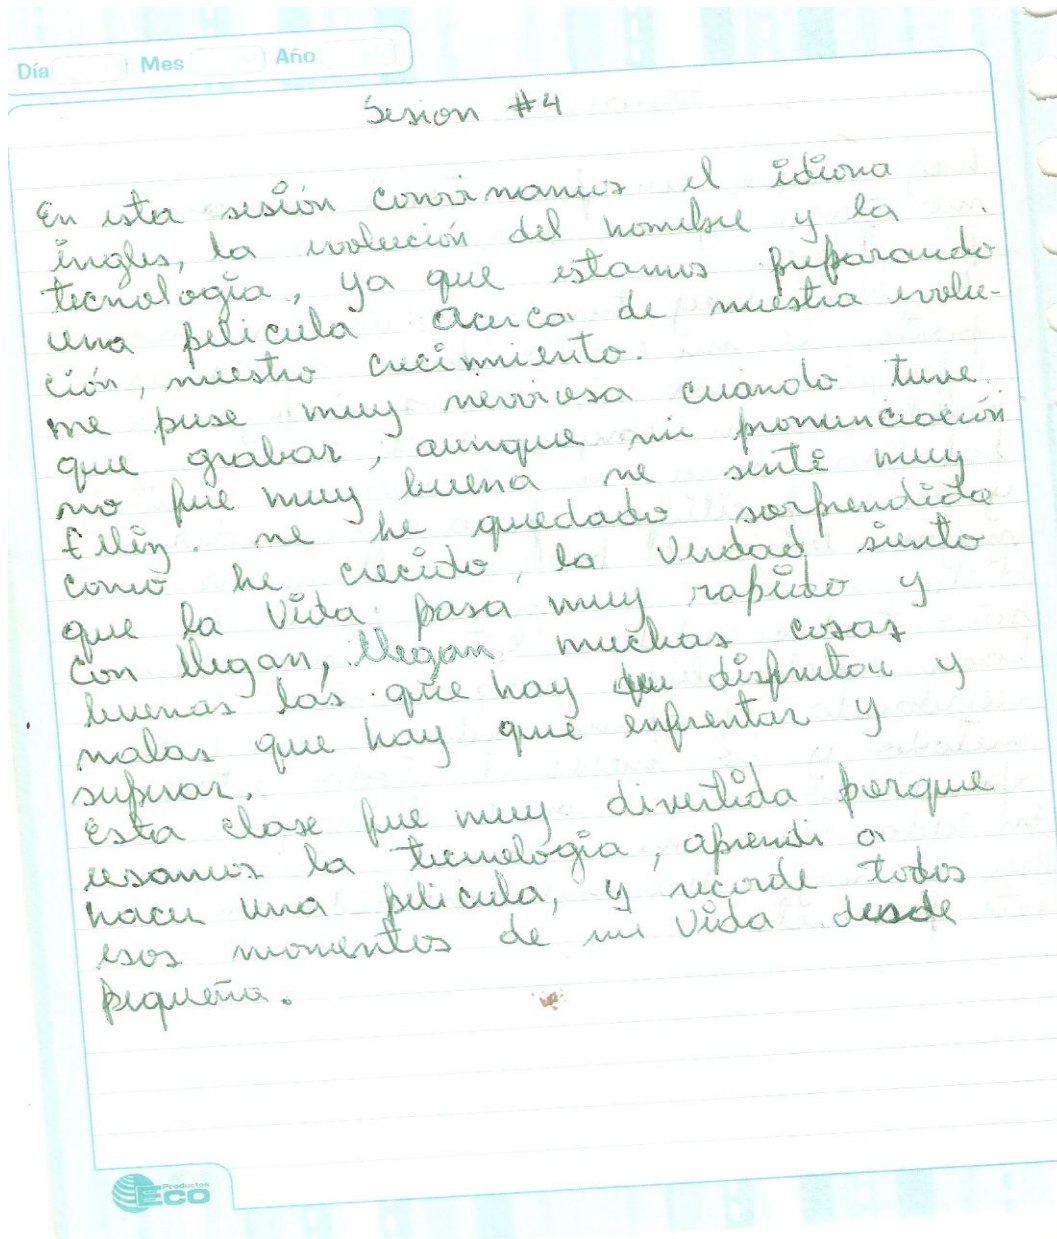 Día Mes Año
Sesion #4
En esta sesión convinamos el idioma
ingles, la evolución del hombre y la
tecnología, ya que estamos preparando
una pelicula acerca de nuestra evolu-
ción, nuestro crecimiento.
me puse muy nerviosa cuando tuve
que grabar, aunque mi pronunciación
no fue muy buena me sentí muy
feliz. me he quedado sorprendida
como he crecido, la verdad siento
que la vida pasa muy rapido y
con llegan, llegan muchas cosas
buenas las que hay que disfrutar y
malas que hay que enfrentar y
superar.
Esta clase fue muy divertida porque
usamos la tecnología, aprendi a
hacer una pelicula, y recorde todos
esos momentos de mi vida desde
pequeña.
Productos
ECO